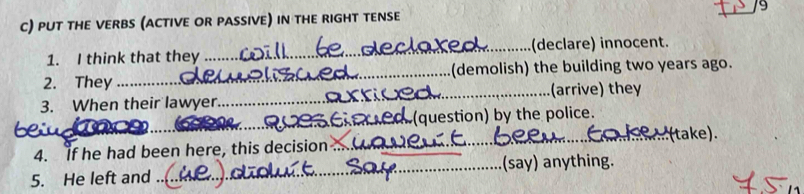 7,5 /9
C) PUT THE VERBS (ACTIVE OR PASSIVE) IN THE RIGHT TENSE
1. I think that they ....... will be declared .......(declare) innocent.
2. They ....... demoliscued .......(demolish) the building two years ago.
3. When their lawyer....... arrived .......(arrive) they
being ....... questioned (question) by the police.
4. If he had been here, this decision ... haven't been taken (take).
5. He left and ... (he) didn't say .......(say) anything.
7.5